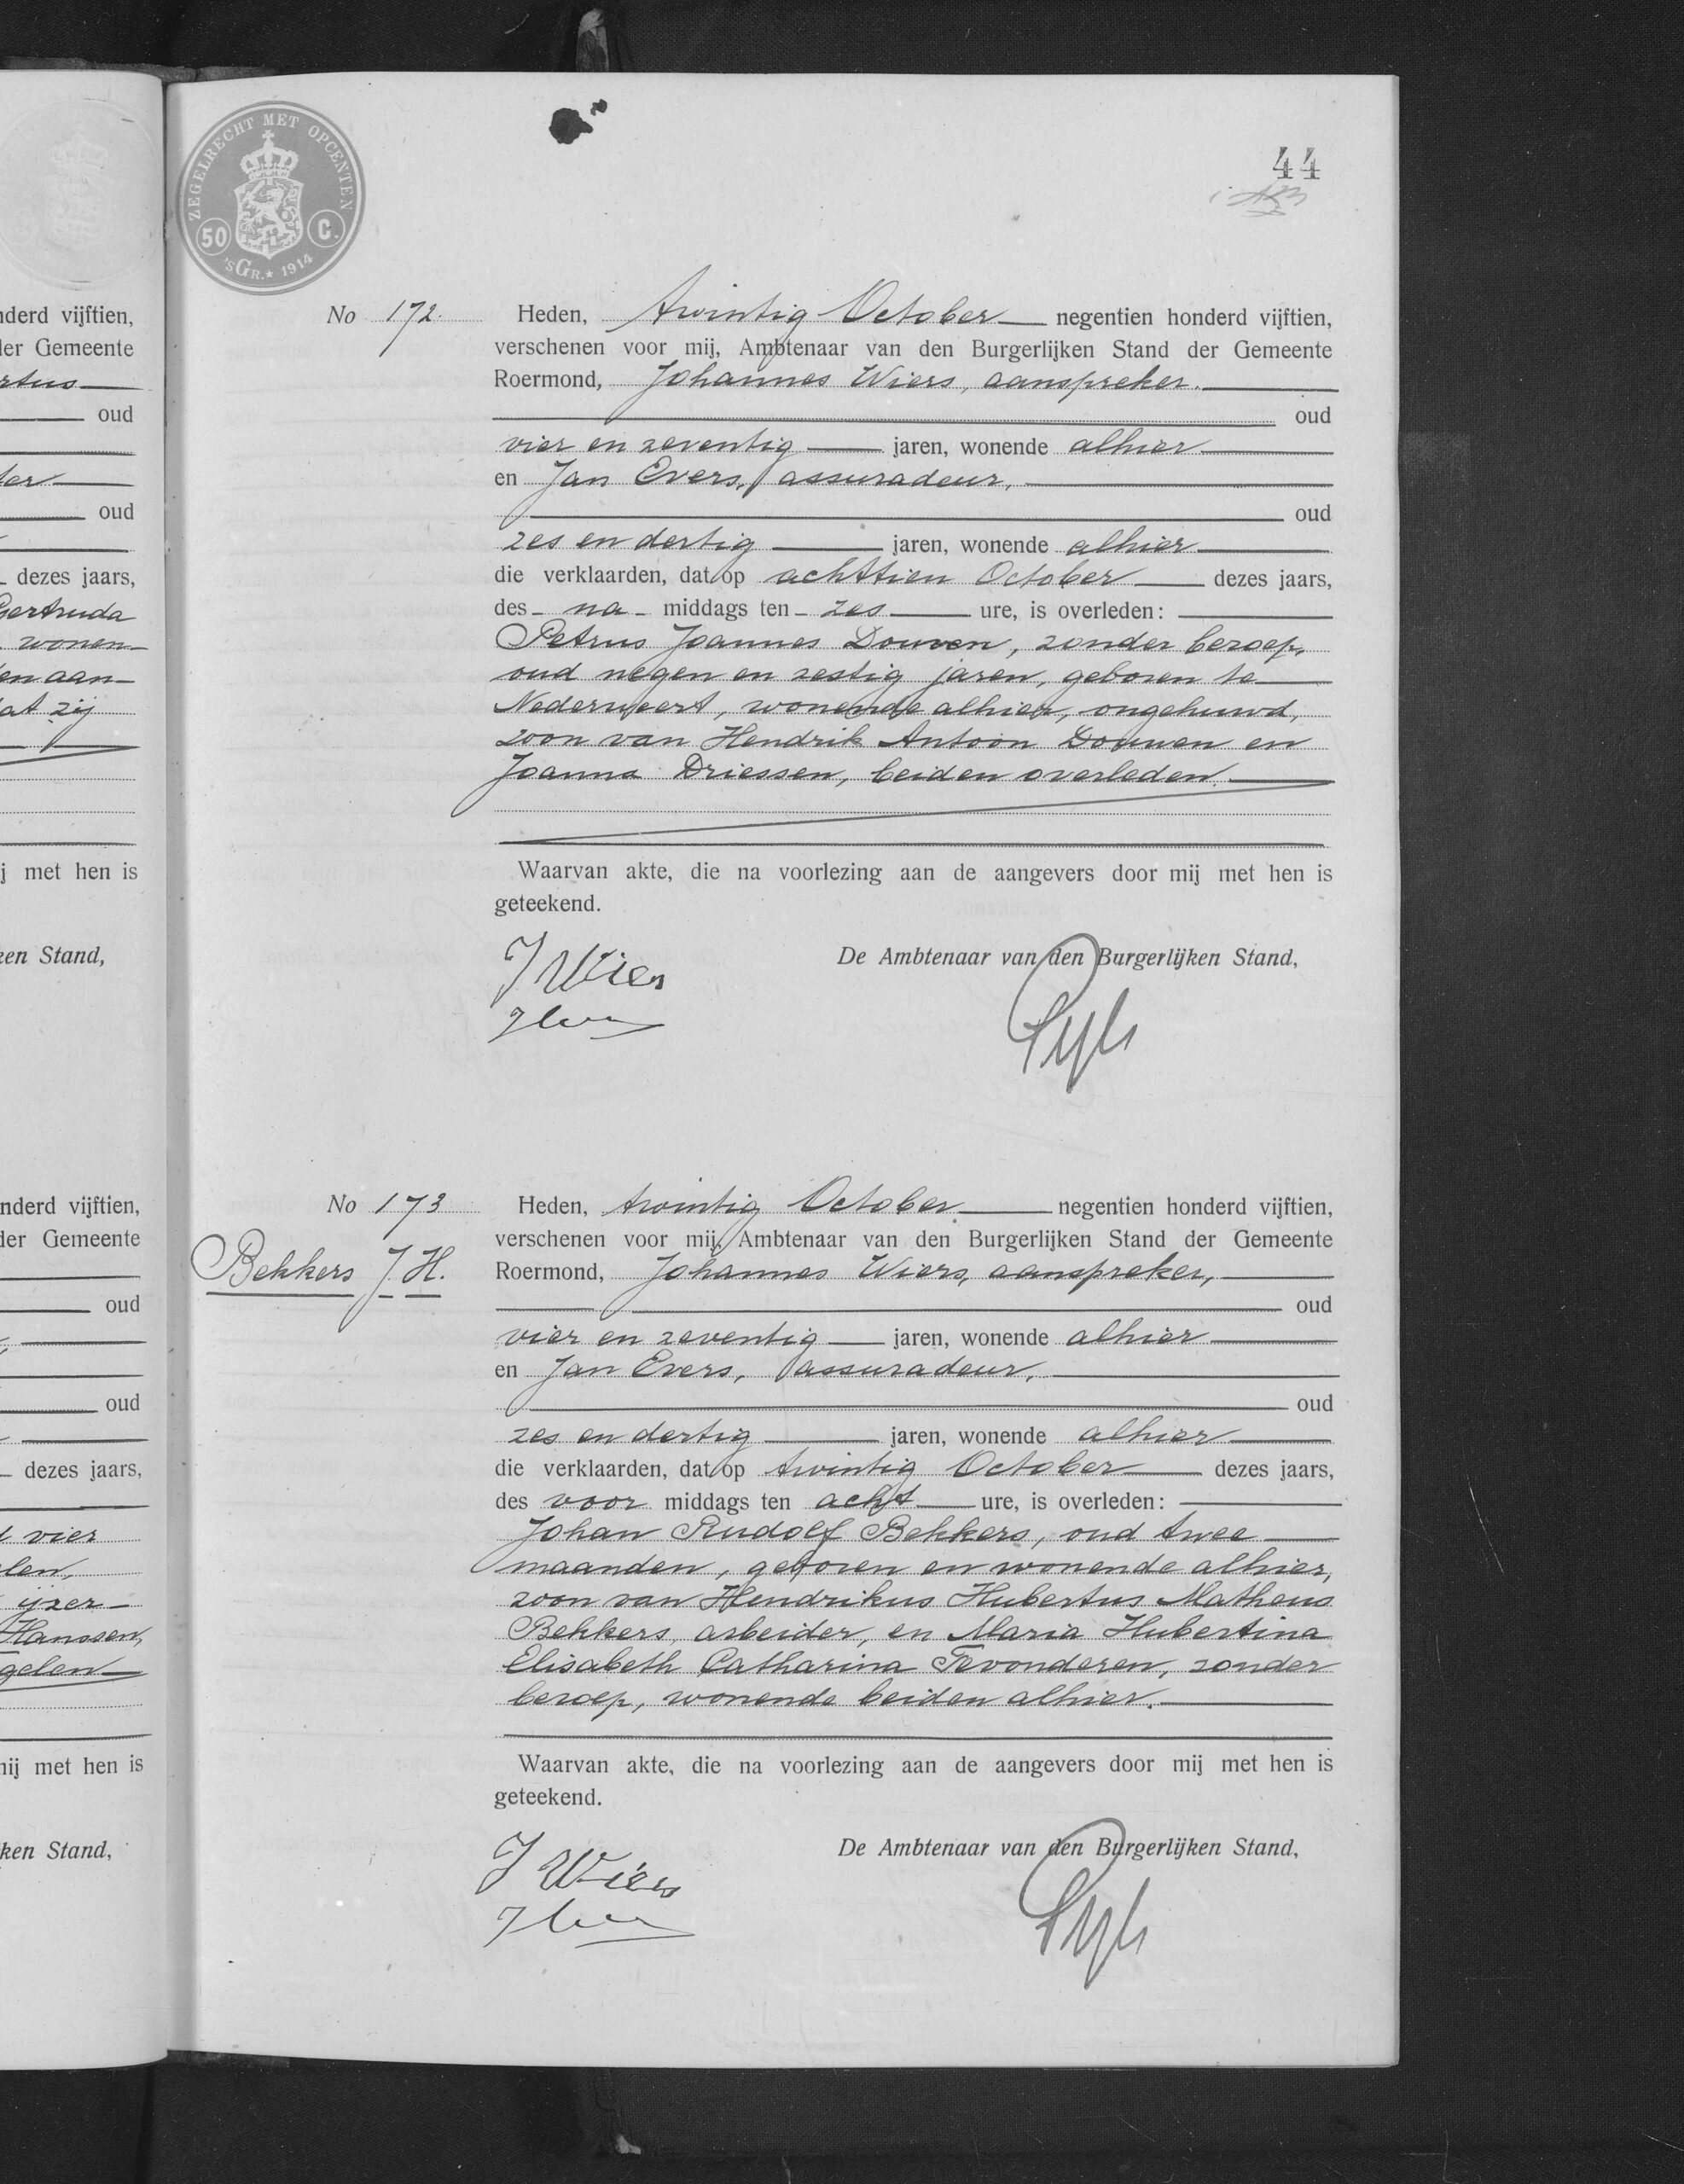 ZEGELRECHT MET OPCENTEN
50 C.
'SGR.★ 1914
44
No 172.
Heden, twintig October negentien honderd vijftien,
verschenen voor mij, Ambtenaar van den Burgerlijken Stand der Gemeente
Roermond, Johannes Wiers, aanspreker.
oud
vier en zeventig jaren, wonende alhier
en Jan Evers, assuradeur,
oud
zes en dertig jaren, wonende alhier
die verklaarden, dat op achttien October dezes jaars,
des na middags ten zes ure, is overleden:
Petrus Joannes Douven, zonder beroep,
oud negen en zestig jaren, geboren te
Nederweert, wonende alhier, ongehuwd,
zoon van Hendrik Antoon Douwen en
Joanna Driessen, beiden overleden.
Waarvan akte, die na voorlezing aan de aangevers door mij met hen is
geteekend.
De Ambtenaar van den Burgerlijken Stand,
J Wiers
No 173
Bekkers J. H.
Heden, twintig October negentien honderd vijftien,
verschenen voor mij, Ambtenaar van den Burgerlijken Stand der Gemeente
Roermond, Johannes Wiers, aanspreker,
oud
vier en zeventig jaren, wonende alhier
en Jan Evers, assuradeur,
oud
zes en dertig jaren, wonende alhier
die verklaarden, dat op twintig October dezes jaars,
des voor middags ten acht ure, is overleden:
Johan Rudolf Bekkers, oud twee
maanden, geboren en wonende alhier,
zoon van Hendrikus Hubertus Matheus
Bekkers, arbeider, en Maria Hubertina
Elisabeth Catharina Tevonderen, zonder
beroep, wonende beiden alhier.
Waarvan akte, die na voorlezing aan de aangevers door mij met hen is
geteekend.
De Ambtenaar van den Burgerlijken Stand,
J Wiers
nderd vijftien,
der Gemeente
rtus
oud
ter
oud
dezes jaars,
Gertruda
wonen-
en aan-
at zij
j met hen is
ken Stand,
nderd vijftien,
der Gemeente
oud
oud
dezes jaars,
vier
len,
ijzer-
Hanssen,
gelen
nij met hen is
ken Stand,